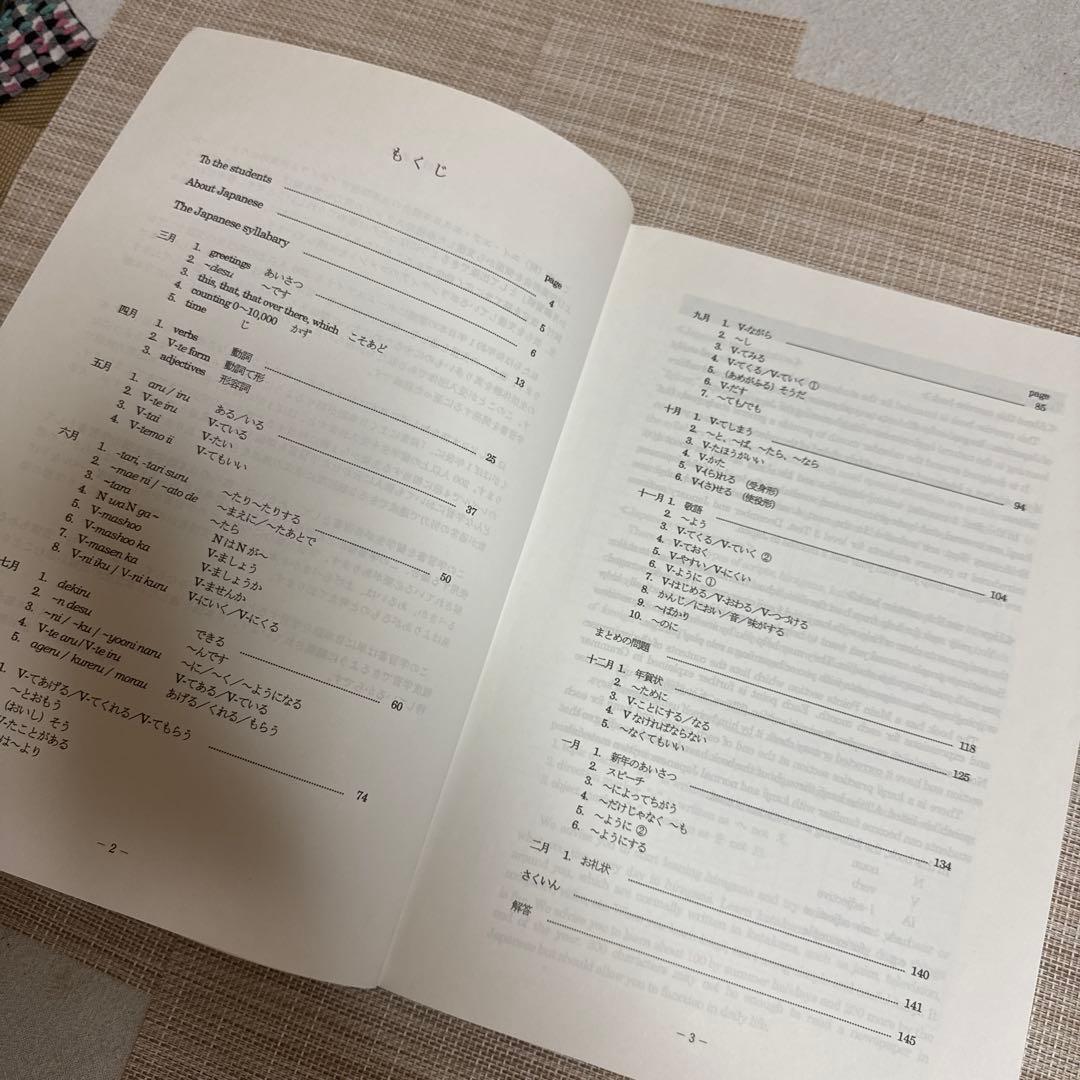 もくじ
page
To the students 4
About Japanese 5
The Japanese syllabary 6
三月 1. greetings あいさつ 13
2. ~desu ～です
3. this, that, that over there, which こそあど
4. counting 0～10,000 かず
5. time じ
四月 1. verbs 動詞 25
2. V-te form 動詞て形
3. adjectives 形容詞
五月 1. aru / iru ある／いる 37
2. V-te iru V-ている
3. V-tai V-たい
4. V-temo ii V-てもいい
六月 1. -tari, -tari suru ～たり～たりする 50
2. ~mae ni / ~ato de ～まえに／～たあとで
3. ~tara ～たら
4. N wa N ga ~ NはNが～
5. V-mashoo V-ましょう
6. V-mashoo ka V-ましょうか
7. V-masen ka V-ませんか
8. V-ni iku / V-ni kuru V-にいく／V-にくる
七月 1. dekiru できる 60
2. ~n desu ～んです
3. ~ni / -ku / ~yooni naru ～に／～く／～ようになる
4. V-te aru / V-te iru V-てある／V-ている
5. ageru / kureru / morau あげる／くれる／もらう
1. V-てあげる／V-てくれる／V-てもらう 74
～とおもう
（おいし）そう
V-たことがある
は～より
－2－
page
九月 1. V-ながら 85
2. ～し
3. V-てみる
4. V-てくる／V-ていく ①
5. （あめがふる）そうだ
6. V-だす
7. ～ても/でも
十月 1. V-てしまう 94
2. ～と、～ば、～たら、～なら
3. V-たほうがいい
4. V-かた
5. V-(ら)れる （受身形）
6. V-(さ)せる （使役形）
十一月 1. 敬語 104
2. ～よう
3. V-てくる／V-ていく ②
4. V-ておく
5. V-やすい／V-にくい
6. V-ように ①
7. V-はじめる／V-おわる／V-つづける
8. かんじ／におい／音／味がする
9. ～ばかり
10. ～のに
まとめの問題 118
十二月 1. 年賀状 125
2. ～ために
3. V-ことにする／なる
4. V なければならない
5. ～なくてもいい
一月 1. 新年のあいさつ 134
2. スピーチ
3. ～によってちがう
4. ～だけじゃなく ～も
5. ～ように ②
6. ～ようにする
二月 1. お礼状 140
さくいん 141
解答 145
－3－